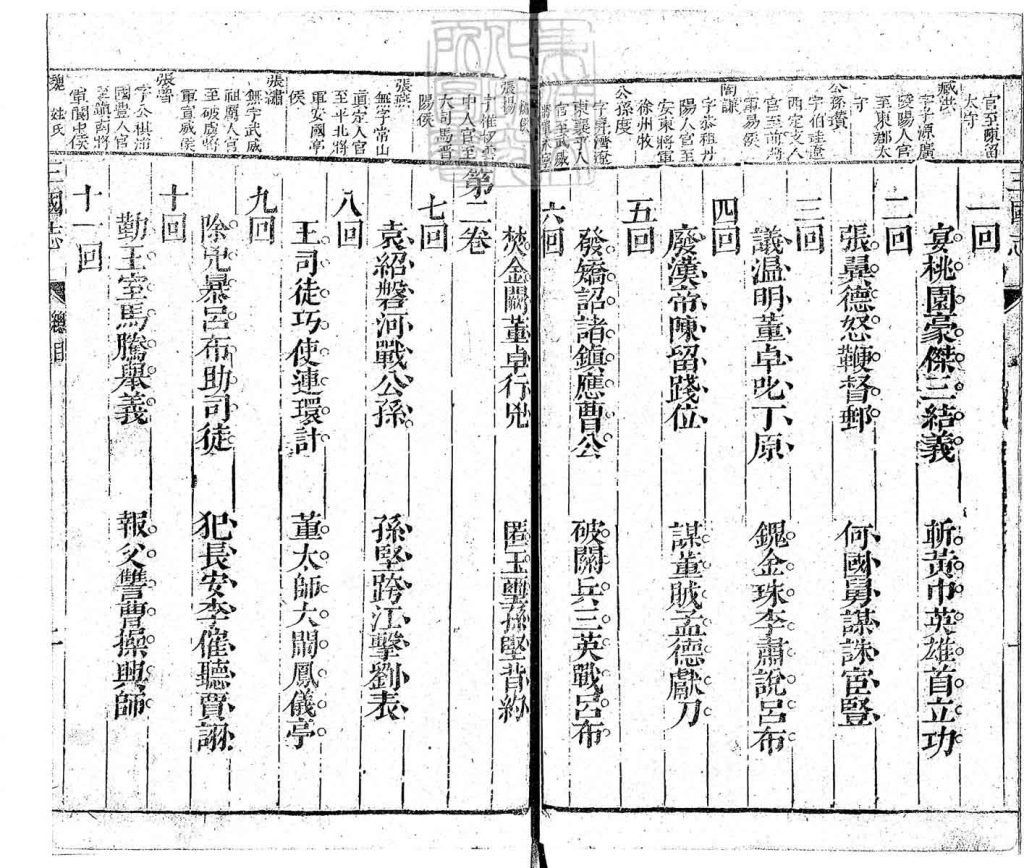 三國志
一回
宴桃園豪傑三結義　斬黃巾英雄首立功
二回
張翼德怒鞭督郵　何國舅謀誅宦豎
三回
議溫明董卓叱丁原　餽金珠李肅說呂布
四回
廢漢帝陳留踐位　謀董賊孟德獻刀
五回
發矯詔諸鎮應曹公　破關兵三英戰呂布
六回
焚金闕董卓行兇　匿玉璽孫堅背約
第二卷
七回
袁紹磐河戰公孫　孫堅跨江擊劉表
八回
王司徒巧使連環計　董太師大鬧鳳儀亭
九回
除兇暴呂布助司徒　犯長安李傕聽賈詡
十回
勤王室馬騰舉義　報父讐曹操興師
十一回
三國志　總目
官至陳留
太守
臧洪
字子源廣
陵陽人官
至東郡太
守
公孫瓚
字伯珪遼
西
官至前將
軍易侯
陶謙
字恭祖丹
陽人官至
安東將軍
徐州牧
公孫度
字升濟遼
東襄平人
張楊
中人官至
大司馬晉
陽侯
張燕
無字常山
真定人官
至平北將
軍安國亭
侯
張繡
無字武威
祖厲人官
至破虜將
軍宣威侯
張魯
字公祺沛
國豐人官
至鎮南將
軍閬中侯
姓氏